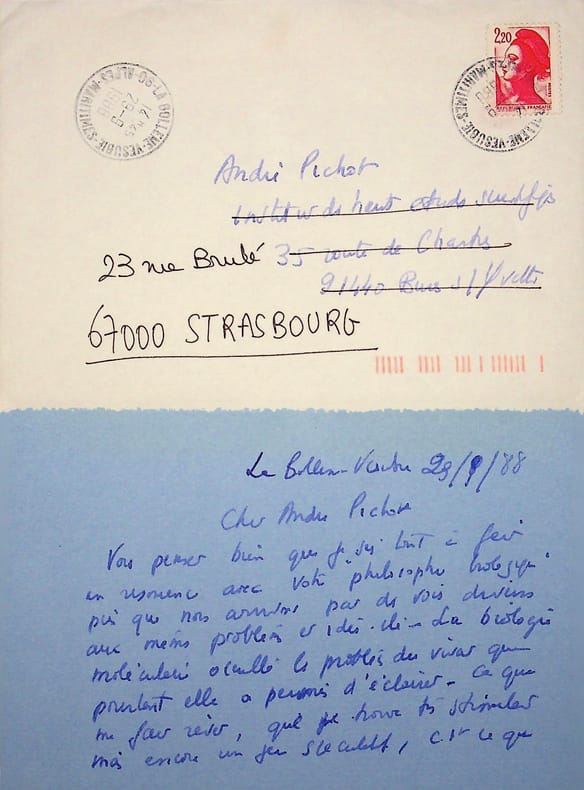 06-LA BOLLENE-VESUBIE-ALPES-MARITIMES
14 H45
29-8
1988
2,20
REPUBLIQUE FRANÇAISE
André Pichot
Institut des haut etudes scientifiqs
23 rue Brulé 35 route de Chartres
91440 Bures s/Yvette
67000 STRASBOURG
La Bollène-Vésubie 29/8/88
Cher André Pichot
Vous pensez bien que je suis tout à fait
en résonance avec votre "philosophie biologique"
puis que nous arrivons par des voies diverses
aux mêmes problèmes et idées La biologie
moléculaire occulte le problème du vivant que
pourtant elle a permis d'éclairer - Ce que
me fait rêver, que je trouve très stimulant
mais encore un peu spéculatif, c'est ce que